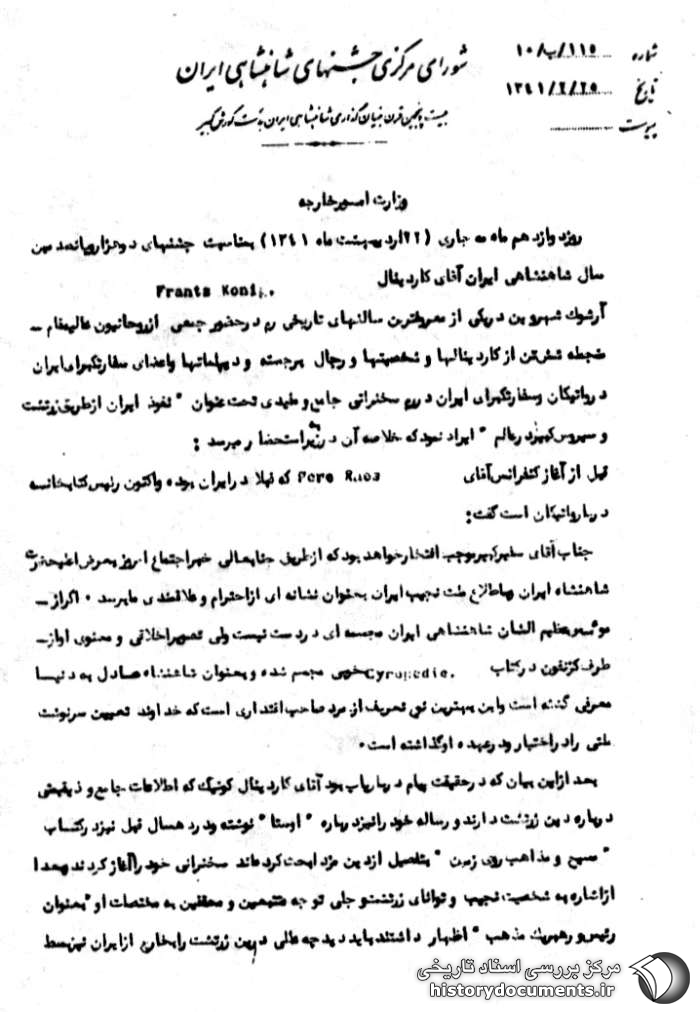 شماره ۱۱۵/ب/۱۰
تاریخ ۱۳۴۱/۲/۲۵
پیوست
شورای مرکزی جشنهای شاهنشاهی ایران
بیست و پنجمین قرن بنیان گذاری شاهنشاهی ایران بدست کورش کبیر
وزارت امور خارجه
روز دوازدهم ماه مه جاری (۲۲ اردیبهشت ماه ۱۳۴۱) بمناسبت جشنهای دوهزاروپانصدمین
سال شاهنشاهی ایران آقای کاردینال Frants Koni
آرشوک شهر وین در یکی از معروفترین سالنهای تاریخی رم در حضور جمعی از روحانیون عالیمقام –
منجمله شش تن از کاردینالها و شخصیتها و رجال برجسته و دیپلماتها واعضای سفارتکبرای ایران
در واتیکان وسفارتکبرای ایران در رم سخنرانی جامع و مفیدی تحت عنوان " نفوذ ایران از طریق زرتشت
و سیروس کبیر در عالم " ایراد نمود که خلاصه آن در زیر به استحضار میرسد :
قبل از آغاز کنفرانس آقای Pere که قبلا در ایران بوده واکنون رئیس کتابخانه
دربار واتیکان است گفت :
جناب آقای سفیر کبیر موجب افتخار خواهد بود که از طریق جنابعالی خبر اجتماع امروز بعرض اعلیحضرت
شاهنشاه ایران و باطلاع ملت نجیب ایران بعنوان نشانه ای از احترام و علاقمندی ما برسد . اگر از –
موسس عظیم الشان شاهنشاهی ایران مجسمه ای در دست نیست ولی تصویر اخلاقی و معنوی او از –
طرف گزنفون در کتاب Cyropedie. بخوبی مجسم شده و بعنوان شاهنشاه عادل به دنیا
معرفی گشته است و این بهترین نوع تعریف از مرد صاحب اقتداری است که خداوند تعیین سرنوشت
ملتی را در اختیار و در عهده او گذاشته است .
بعد از این بیان که در حقیقت پیام دربار پاپ بود آقای کاردینال کونیگ که اطلاعات جامع و ذیقیمتی
درباره دین زرتشت دارند و رساله خود را نیز درباره " اوستا " نوشته و در دهسال قبل نیز در کتاب
" مسیح و مذاهب روی زمین " بتفصیل از دین مزدا بحث کرده‌اند سخنرانی خود را آغاز کردند و بعد از
اشاره به شخصیت نجیب و توانای زرتشت و جلب توجه متتبعین و محققین به مختصات او " بعنوان
رئیس و رهبر یک مذهب " اظهار داشتند باید دید چه عاملی دین زرتشت را بخارج از ایران نیز بسط
مرکز بررسی اسناد تاریخی
historydocuments.ir